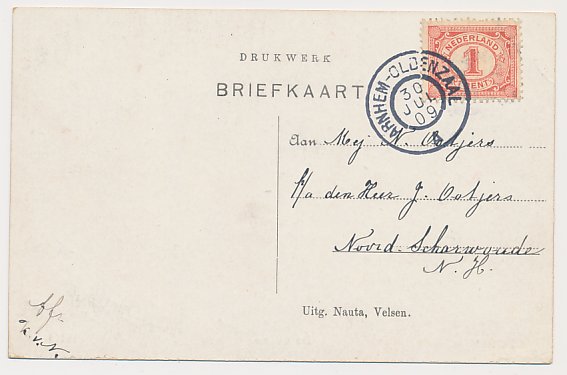 DRUKWERK
BRIEFKAART
NEDERLAND
1
CENT
ARNHEM-OLDENZAAL
30
JUL
09
Aan Mej N. Ootjers
p/a den Heer J. Ootjers
Noord-Scharwoude
N. H.
Uitg. Nauta, Velsen.